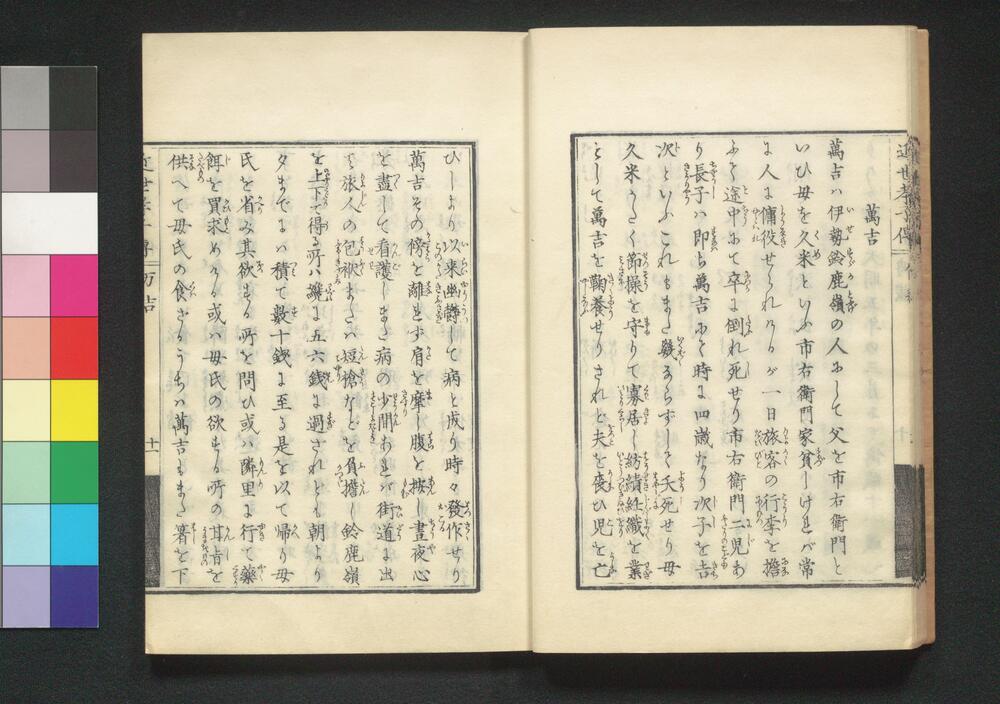 近世孝子傳
萬吉
萬吉ハ伊勢鈴鹿嶺の人にして父を市右衛門と
いひ母を久米といふ市右衛門家貧しけれバ常
に人に傭役せられけるが一日旅客の行李を擔
ふて途中にて卒に倒れ死せり市右衛門二児あ
り長子ハ即ち萬吉にて時に四歳なり次子を吉
次といふこれもまた幾ならずして夭死せり母
久米かたく節操を守りて寡居し紡績紝織を業
として萬吉を鞠養せりされと夫を喪ひ児を亡
ひしより以来幽欝して病と成り時々發作せり
萬吉その傍を離れず肩を摩し腹を按し晝夜心
を盡して看護しまた病の少間あれバ街道に出
て旅人の包袱または短槍などを負擔し鈴鹿嶺
を上下て得る所ハ纔に五六錢に過ざれとも朝より
夕までにハ積て數十錢に至る是を以て帰り母
氏を省み其欲する所を問ひ或ハ隣里に行て藥
餌を買求めける或ハ母氏の欲する所の甘旨を
供へて母氏の食ざるうちハ萬吉もまた箸を下
近世孝子傳 万吉 十一